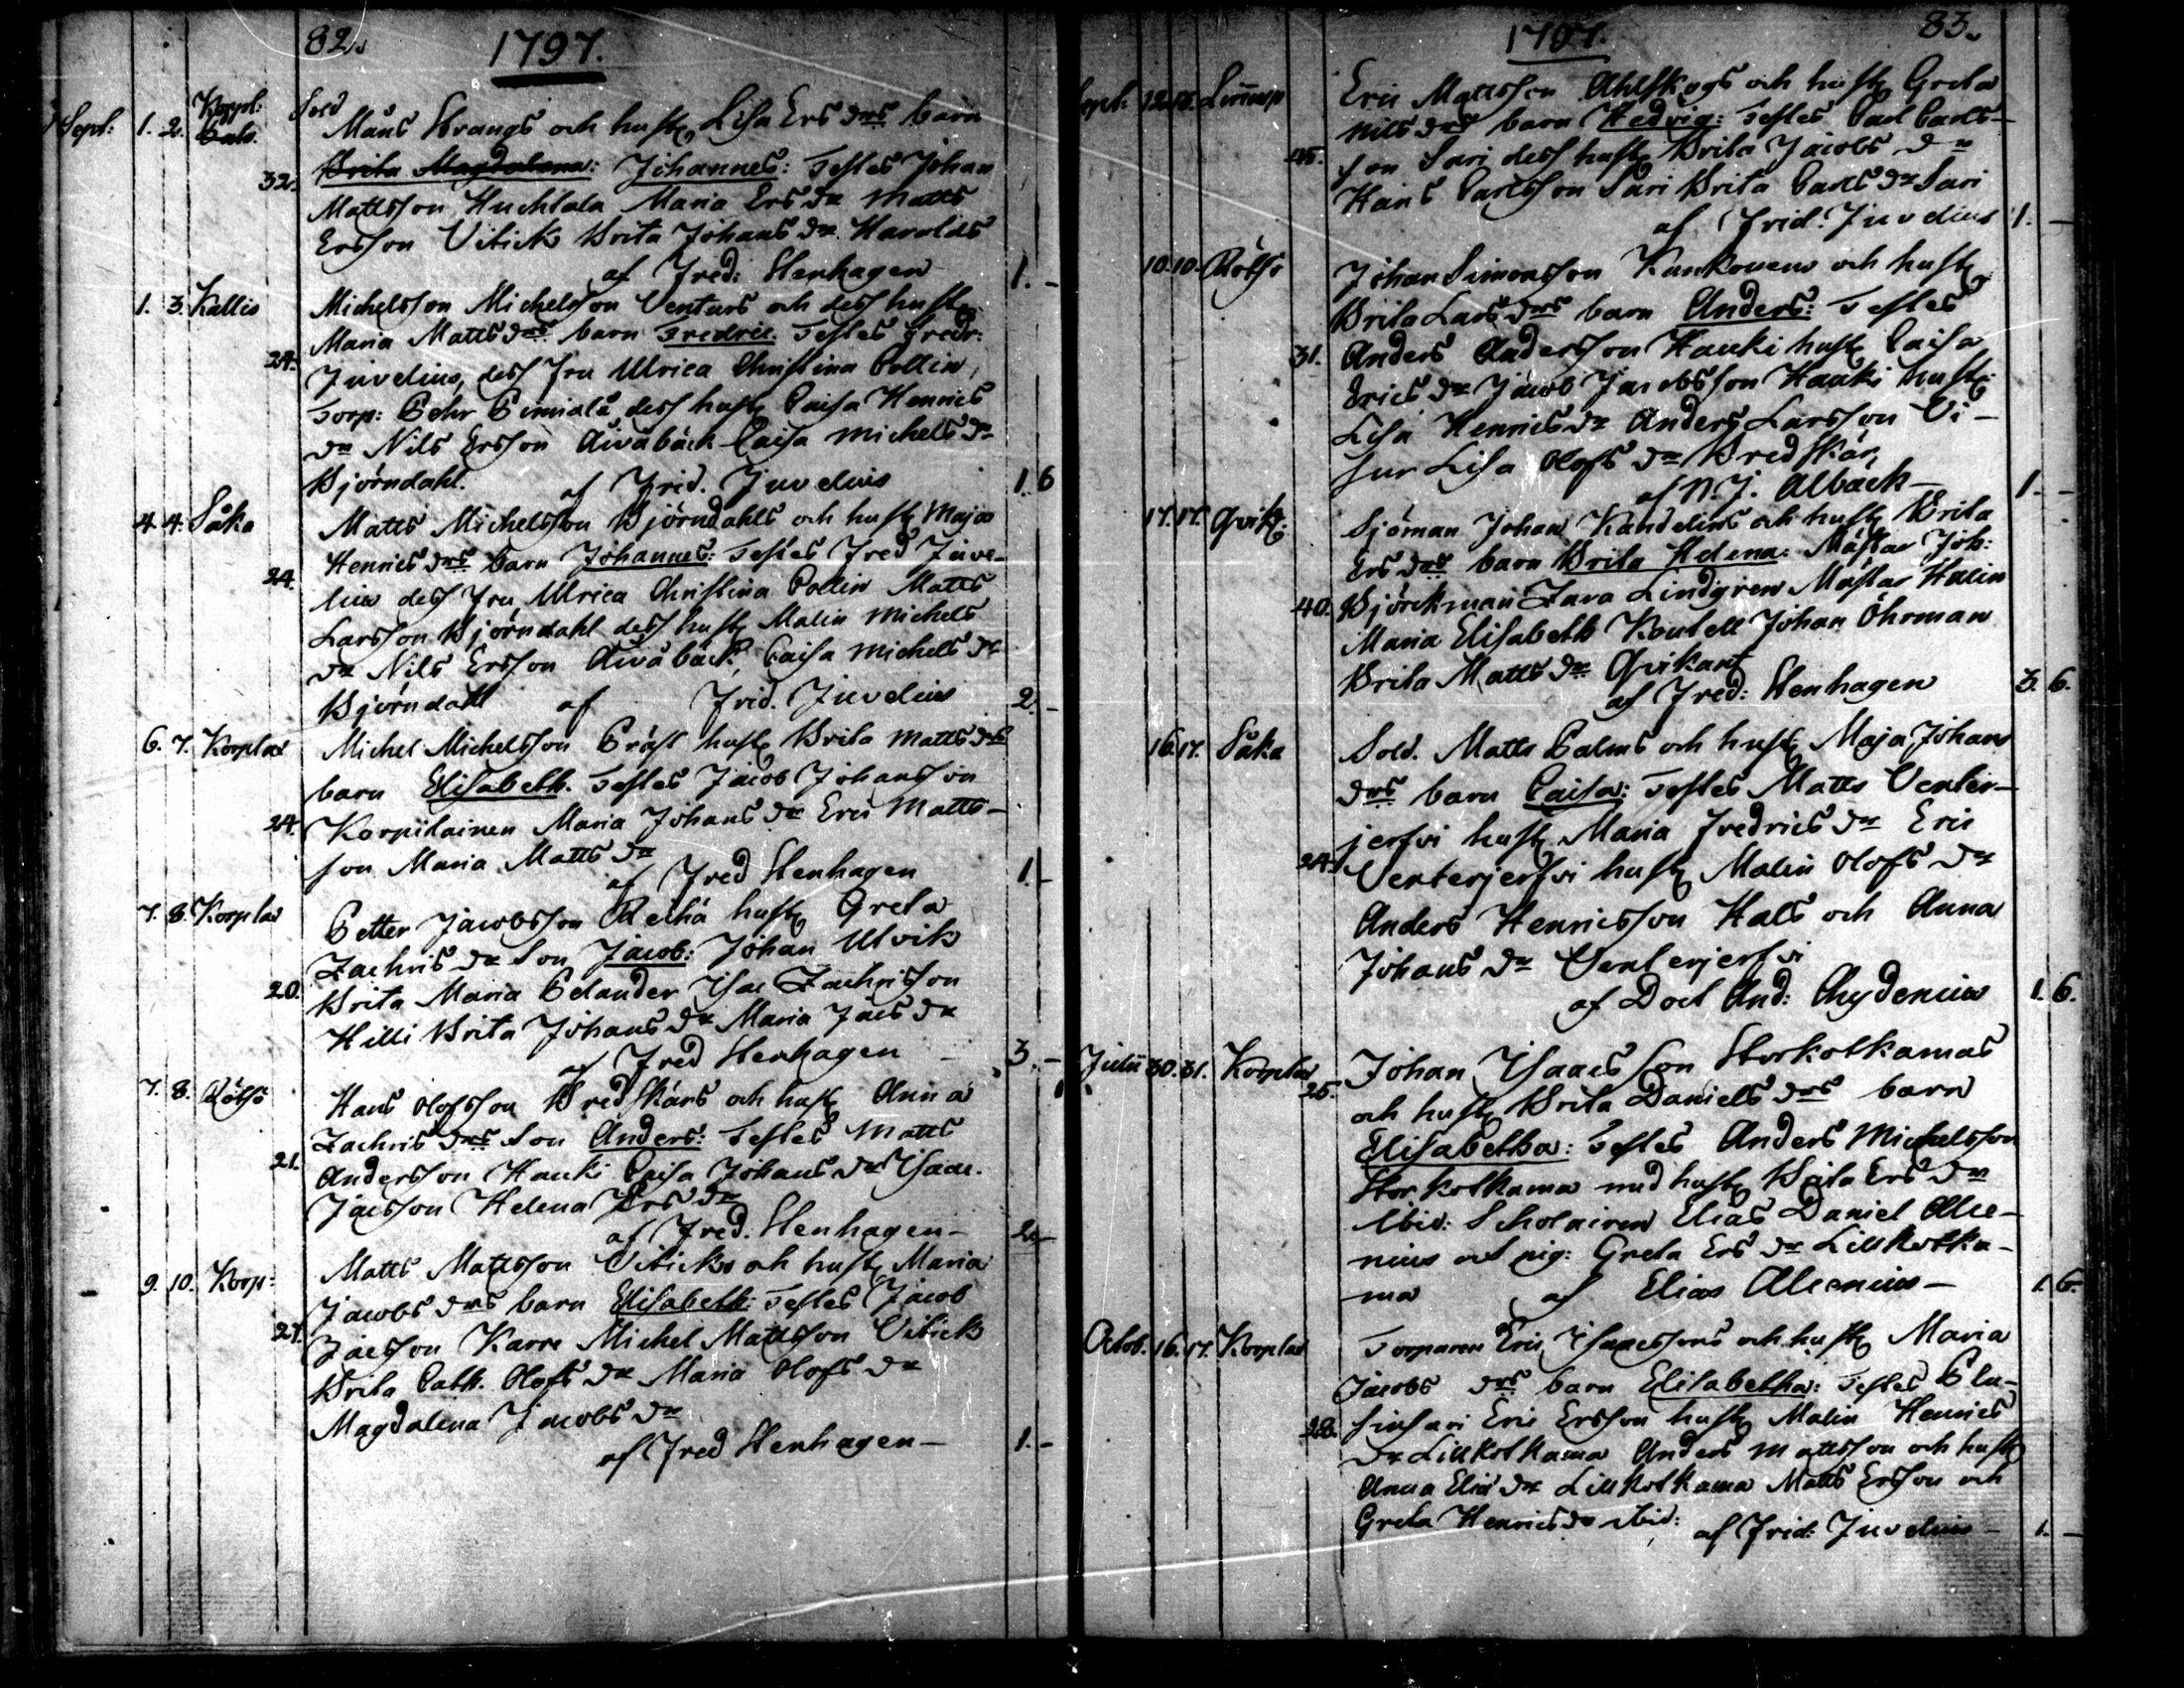 82.
1797.
Sept: 1. 2. Korpl: Sold
Måns Strangs och hust. Lisa Ers drs barn
32. Brita Magdalena: Johannes: Testes Johan
Mattsson Huchtala Maria Ers dr Matts
Ersson Vitick Brita Johans dr Haralds
af Fred: Stenhagen 1. -
1. 3. Kallis Michelsson Michelsson Venturs och dess hust.
Maria Matts drs barn Fredric. Testes Fredr:
24. Juvelius, dess Fru Ulrica Christina Collin,
Torp: Pehr Pimiälä dess hust. Caisa Henrics
dr Nils Ersson Åiväbäck Caisa Michels dr
Björndahl. af Frid. Juvelius 1. 6
4. 4. Såka Matts Michelsson Björndahls och hust. Maja
Henrics drs barn Johannes: Testes Fred Juve-
24. lius dess Fru Ulrica Christina Collin Matts
Larsson Björndahl dess hust. Malin Michels
dr Nils Ersson Åiväbäck Caisa Michels dr
Björndahl af Frid. Juvelius 2. -
6. 7. Korplax Michel Michelsson Präst hust. Brita Matts drs
barn Elisabeth. Testes Jacob Johansson
24. Korpilainen Maria Johans dr Eric Matts-
son Maria Matts dr
af Fred Stenhagen 1. -
7. 8. Korplax Petter Jacobsson Reihä hust. Greta
Zachris dr Son Jacob: Johan Ulvik
20. Brita Maria Pelander Isac Zachrisson
Hilli Brita Johans dr Maria Jacs dr
af Fred Stenhagen - 3. -
7. 8. Rötsö Hans Olofsson Bredskärs och hust. Anna
Zachris drs Son Anders: Testes Matts
21. Andersson Hauki Caisa Johans dr Isaac
Jacsson Helena Ers dr
af Fred. Stenhagen - 2. -
9. 10. Korp: Matts Mattsson Viticks och hust. Maria
Jacobs drs barn Elisabeth: Testes Jacob
27. Jacsson Karre Michel Mattsson Vitick
Brita Cath. Olofs dr Maria Olofs dr
Magdalena Jacobs dr
af Fred Stenhagen - 1. -
1797. 83.
Sept:
Eric Mattsson Ahlskogs och hust. Greta
Nils drs barn Hedvig: Testes Carl Carls-
45. son Sari dess hust. Brita Jacobs dr
Hans Carlsson Sari Brita Carls dr Sari
af Frid. Juvelius 1. -
10. 10. Rötsö Johan Simonsson Kankonens och hust.
Brita Lars drs barn Anders: Testes
31. Anders Andersson Hauki hust. Caisa
Erics dr Jacob Jacobsson Hauki hust.
Lisa Henrics dr Anders Larsson Vi-
sur Lisa Olofs dr Bredskär,
af N. J. Albäck - 1. -
17. 17. Qvik: Sjöman Johan Kandelins och hust. Brita
Ers drs barn Brita Helena: Mästar Joh:
40. Björckman Zara Lindgren Mästar Halin
Maria Elisabeth Boutell Johan Öhrman
Brita Matts dr Qvikant
af Fred: Stenhagen 3. 6.
16. 17. Såka Sold. Matts Palms och hust. Maja Johans
drs barn Caisa: Testes Matts Venter-
jerfvi hust. Maria Fredrics dr Eric
24. Venterjerfvi hust. Malin Olofs dr
Anders Henricsson Hals och Anna
Johans dr Venterjerfvi
af Doct And: Chydenius 1. 6.
Julii 30. 31. Korplax Johan Isaacsson Storkotkamas
25. och hust. Brita Daniels drs barn
Elisabetha: Testes Anders Michelsson
Storkotkama med hust. Brita Ers dr
ibid: Scholairen Elias Daniel Alce-
nius och pig: Greta Ers dr Lillkotka-
ma af Elias Alcenius - 1. 6.
Octob. 16. 17. Korplax Torparen Eric Isaacssons och hust. Maria
Jacobs drs barn Elisabetha: Testes Plu-
28. sinsari Eric Ersson hust. Malin Henrics
dr Lillkotkama Anders Mattsson och hust.
Anna Elia dr Lillkotkama Matts Ersson och
Greta Henrics dr ibid:
af Frid: Juvelius - 1. -